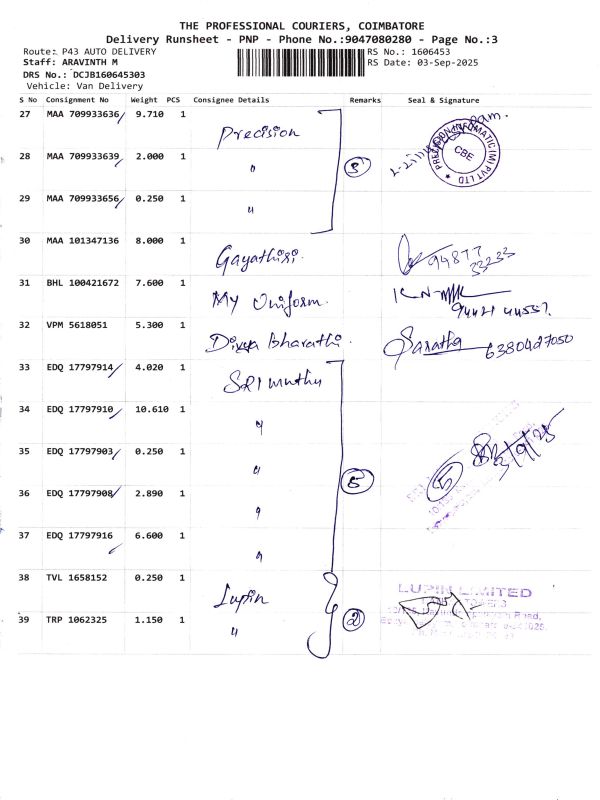 THE PROFESSIONAL COURIERS, COIMBATORE
Delivery Runsheet - PNP - Phone No.:9047080280 - Page No.:3
Route: P43 AUTO DELIVERY RS No.: 1606453
Staff: ARAVINTH M RS Date: 03-Sep-2025
DRS No.: DCJB160645303
Vehicle: Van Delivery
S No Consignment No Weight PCS Consignee Details Remarks Seal & Signature
27 MAA 709933636 9.710 1 Precision
28 MAA 709933639 2.000 1 " 3
PRECISION INFORMATIC (M) PVT LTD
CBE
29 MAA 709933656 0.250 1 "
30 MAA 101347136 8.000 1 Gayathiri. 94877
33233
31 BHL 100421672 7.600 1 My Uniform.
32 VPM 5618051 5.300 1 Divya bharathi. Saratha 6380427050
33 EDQ 17797914 4.020 1 SRI muthu
34 EDQ 17797910 10.610 1 "
35 EDQ 17797903 0.250 1 " 5 5
36 EDQ 17797908 2.890 1 "
37 EDQ 17797916 6.600 1 "
38 TVL 1658152 0.250 1 Lupin LUPIN LIMITED
39 TRP 1062325 1.150 1 " 2 Road,